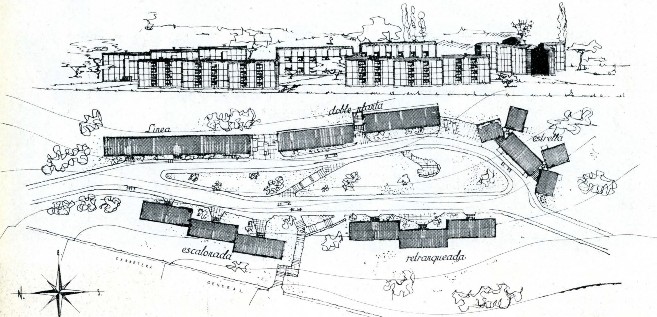 linea
doble planta
estrella
escalonada
retranqueada
CARRETERA GENERAL
N
S